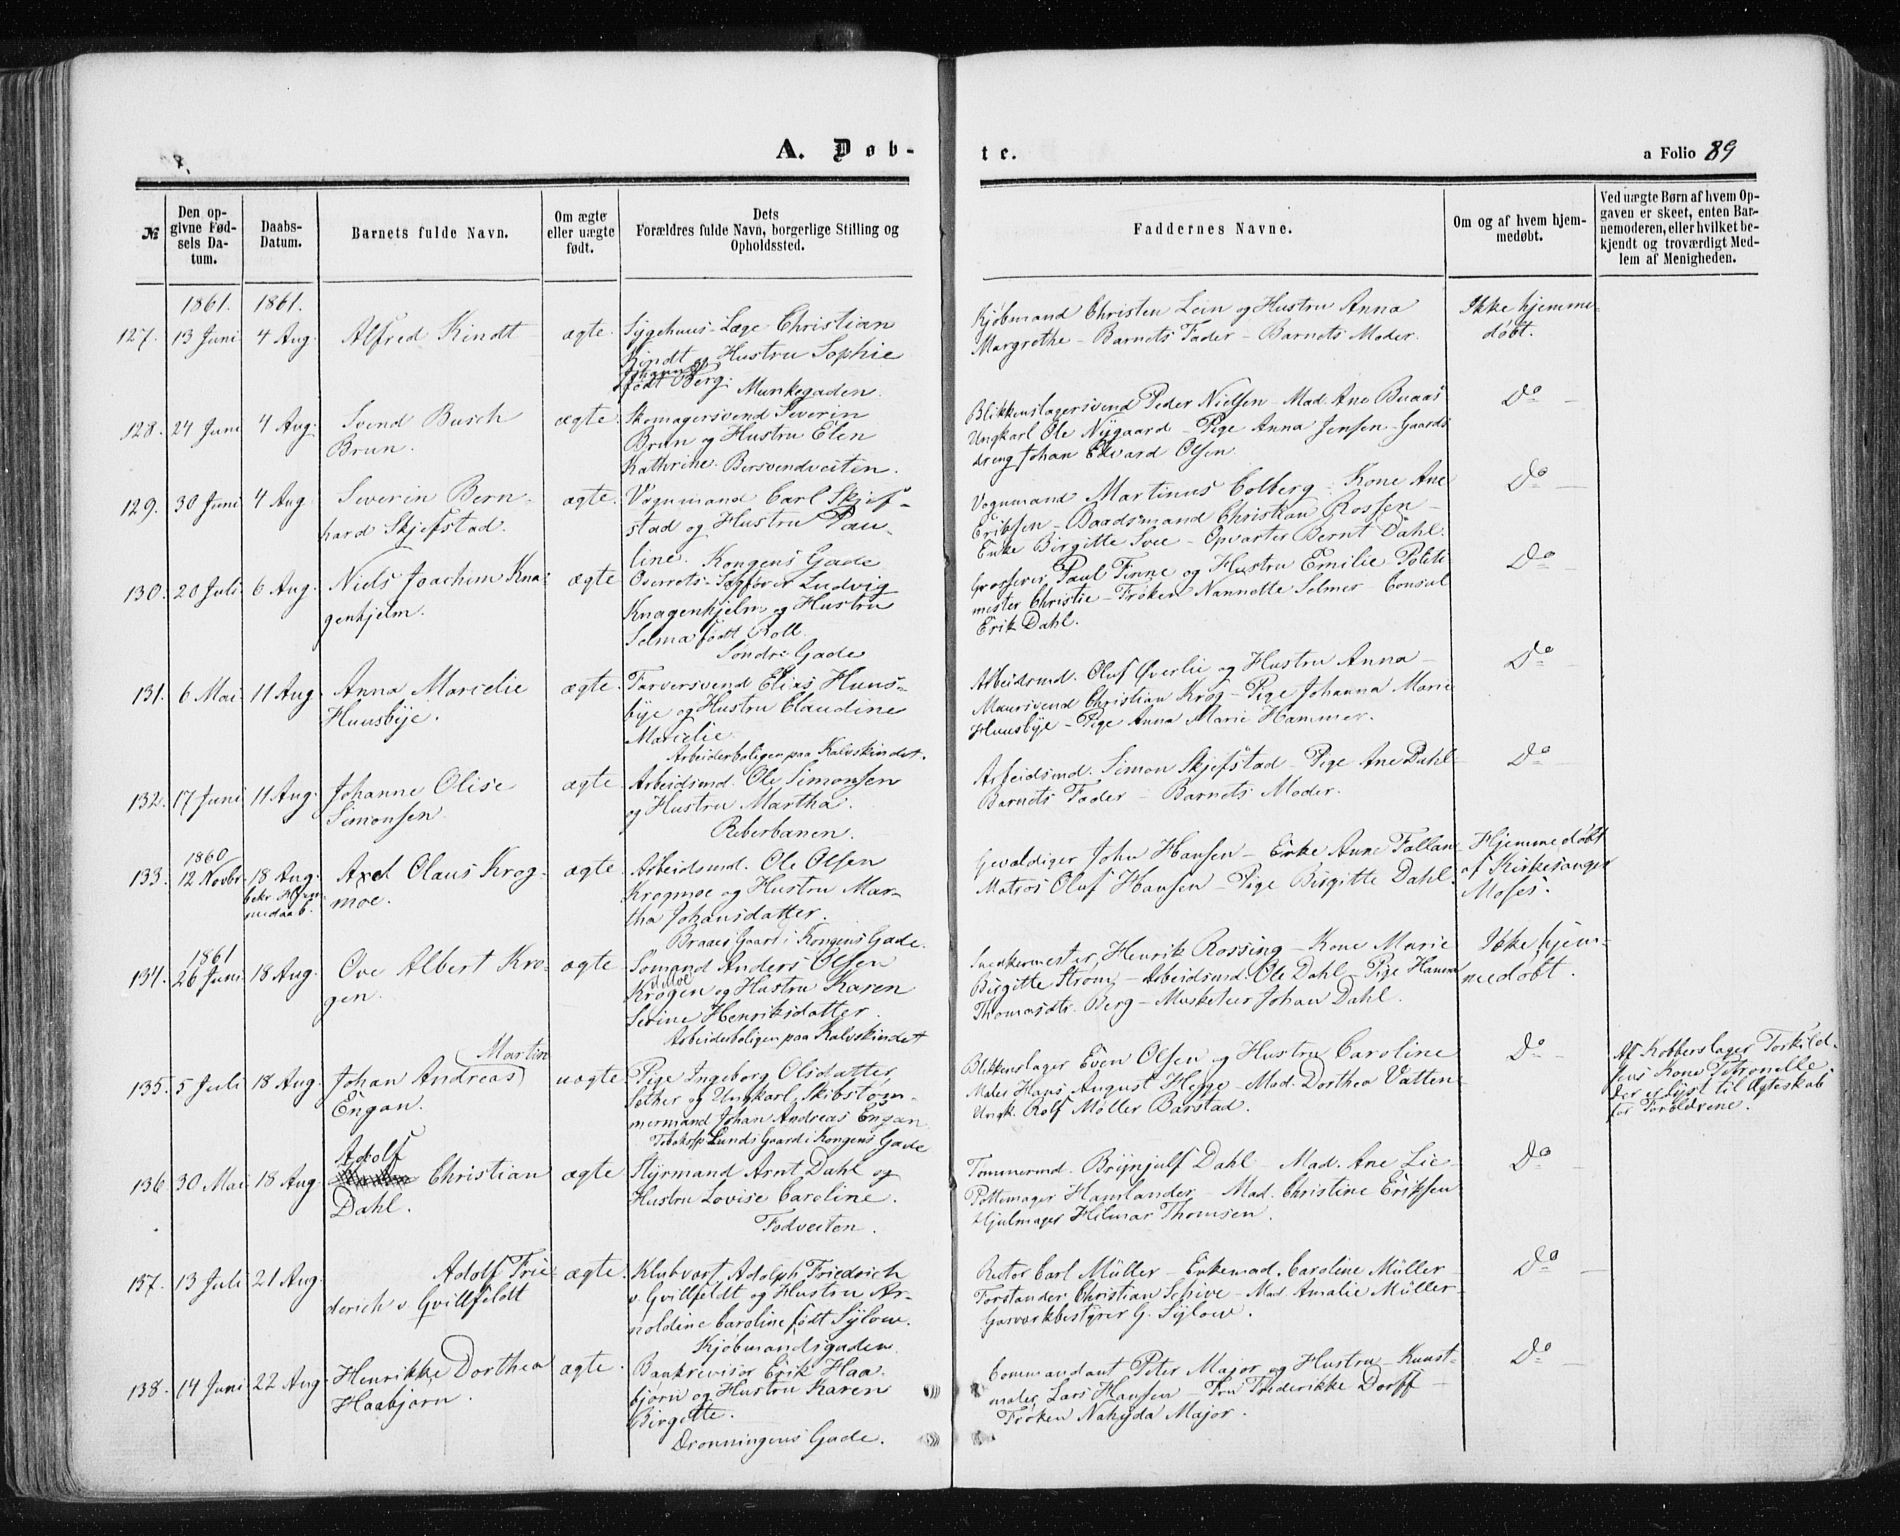 A. Døb-
te.
a Folio 89
№
Den op-
givne Fød-
sels Da-
tum.
Daabs-
Datum.
Barnets fulde Navn.
Om ægte
eller uægte
født.
Dets
Forældres fulde Navn, borgerlige Stilling og
Opholdssted.
Faddernes Navne.
Om og af hvem hjem-
medøbt.
Ved uægte Børn af hvem Op-
gaven er skeet, enten Bar-
nemoderen, eller hvilket be-
kjendt og troværdigt Med-
lem af Menigheden.
1861. 1861.
127. 13 Juni 4 Aug. Alfred Kindt ægte.
Sygehus-Læge Christian
Kindt og Hustru Sophie
Johanne
født Berg. Munkegaden.
Kjøbmand Christen Lein og Hustru Anna
Margrethe - Barnets Fader - Barnets Moder.
Ikke hjemme-
døbt.
128. 24 Juni 4 Aug. Svend Busch
Brun.
ægte.
Skomagersvend Severin
Brun og Hustru Elen
Kathrine. Bersvendveiten.
Blikkenslagersvend Peder Nielsen - Mad. Ane Buaas
Ungkarl Ole Nygaard - Pige Anna Jensen - Gaards
dreng Johan Edvard Olsen.
Do -
129. 30 Juni 4 Aug. Severin Bern-
hard Skjefstad.
ægte.
Vognmand Carl Skjef-
stad og Hustru Pau-
line. Kongens Gade
Vognmand Martinus Colberg - Kone Ane
Eriksen - Baadsmand Christian Rossen -
Enke Birgitte Svee - Opvarter Bernt Dahl.
Do -
130. 20 Juli 6 Aug. Niels Joachim Kna-
genhjelm.
ægte
Overrets-Sagfører Ludvig
Knagenhjelm og Hustru
Selma født Roll.
Søndre Gade
Grosserer Paul Finne og Hustru Emilie Politi
mester Christie - Frøken Nannette Selmer - Consul
Erik Dahl.
Do -
131. 6 Mai 11 Aug. Anna Marielie
Huusbye.
ægte.
Farversvend Elias Huus-
bye og Hustru Claudine
Marielie.
Arbeiderboligen paa Kalvskindet.
Arbeidsmd. Oluf Øverlie og Hustru Anna -
Maursvend Christian Krog - Pige Johanna Marie
Huusbye - Pige Anna Marie Hammer.
Do -
132. 17 Juni 11 Aug. Johanne Olise
Simonsen.
ægte.
Arbeidsmd. Ole Simonsen
og Hustru Martha.
Reberbanen.
Arbeidsmd. Simon Skjefstad - Pige Ane Dahl-
Barnets Fader - Barnets Moder.
Do -
1860
133. 12 Novbr. 18 Aug.
bekr. Hjem-
medaab.
Axel Claus Krog-
moe.
ægte.
Arbeidsmd. Ole Olsen
Krogmoe og Hustru Mar-
tha Johansdatter.
Braaes Gaard i Kongens Gade.
Gevaldiger John Hansen - Enke Anne Fallan
Matros Oluf Hansen - Pige Birgitte Dahl.
Hjemmedøbt
af Kirkesanger
Moses.
1861
134. 26 Juni 18 Aug. Ove Albert Kro-
gen.
ægte.
Sømand Anders Olsen
Krogen og Hustru Karen
Serine Henriksdatter.
Arbeiderboligen paa Kalvskindet
Snekkermester Henrik Rossing - Kone Marie
Birgitte Strøm - Arbeidsmd. Ole Dahl - Pige Hanna
Thomasdtr. Berg - Musketeer Johan Dahl.
Ikke hjem-
medøbt.
Martin
135. 5 Juli 18 Aug. Johan Andreas
Engan.
uægte.
Pige Ingeborg Olsdatter
Sæther og Ungkarl Skibstøm-
mermand Johan Andreas Engan
Tobaksf. Lunds Gaard i Kongens Gade
Blikkenslager Even Olsen og Hustru Caroline
Maler Hans August Hegge - Mad. Dorthea Vatten-
Ungk. Rolf Møller Barstad.
Do -
Af Kobberslager Torkild-
sens Kone Petronelle
Der er lyst til Ægteskab
for Forældrene.
Adolf
136. 30 Mai 18 Aug. Christian
Dahl.
ægte
Styrmand Arnt Dahl og
Hustru Lovise Caroline.
Fodveiten.
Tømmermd. Brynjulf Dahl - Mad. Ane Lie-
Pottemager Hamlander - Mad. Christine Eriksen
Hjulmager Hilmar Thomsen.
Do -
137. 13 Juli 21 Aug. Adolf Frie-
derich v. Gvillfeldt
ægte.
Klubvært Adolph Friedrich
v. Gvillfeldt og Hustru Ar-
noldine Caroline født Sylow.
Kjøbmandsgaden.
Rector Carl Müller - Enkemad. Caroline Müller
Forstander Christian Schive - Mad. Amalie Müller-
Gasværkbestyrer G. Sylow.
Do -
138. 14 Juni 22 Aug. Henrikke Dorthea
Haabjørn.
ægte.
Bankrevisor Erik Haa-
bjørn og Hustru Karen
Birgitte.
Dronningens Gade.
Commandant Peter Major og Hustru - Kunst-
maler Lars Hansen - Fru Frederikke Dorff -
Frøken Nahyda Major.
Do -